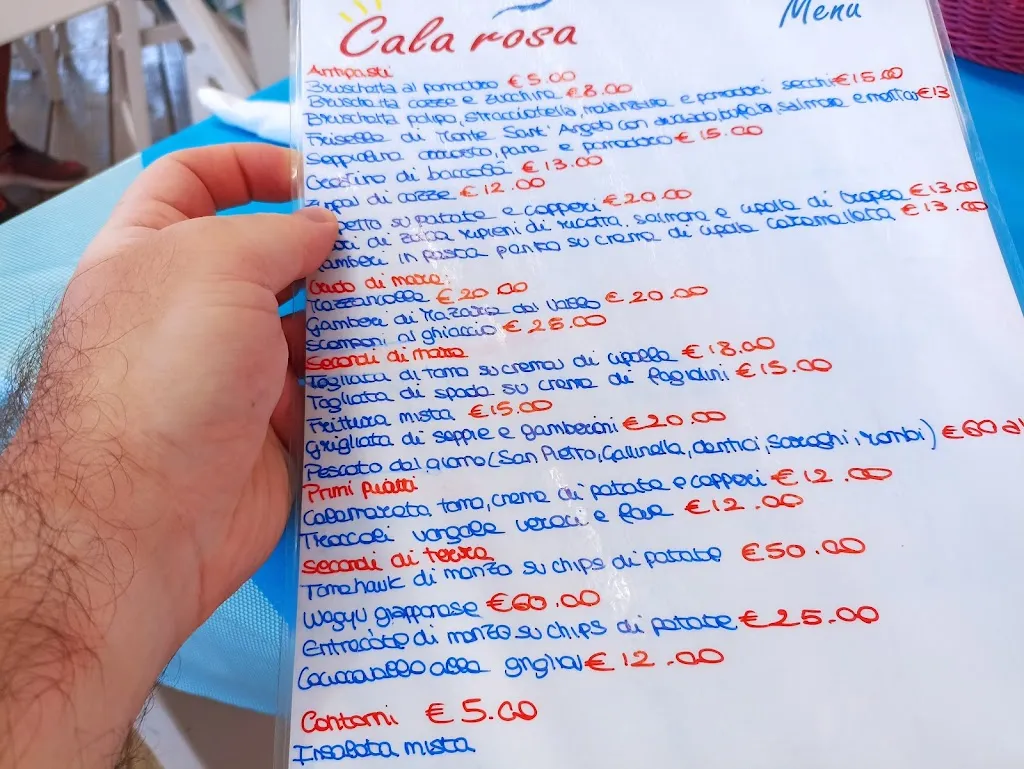 Cala rosa
Menu
Antipasti
Bruschetta al pomodoro €5.00
Bruschetta cozze e zucchine €8.00
Bruschetta polipo, stracciatella, melanzana e pomodori secchi €15.00
Frisella di Monte Sant'Angelo con bufala, salmone e €13
Seppiolina arrosto, pane e pomodoro €15.00
di baccalà €13.00
Zuppa di cozze €12.00
su patate e capperi €20.00
di zucca ripieni di ricotta, salmone e cipolla di tropea €13.00
Gamberi in pasta panko su crema di cipolla caramellata €13.00
Crudo di mare:
Mazzancolle €20.00
Gamberi di Mazara del Vallo €20.00
Scamponi al ghiaccio €25.00
Secondi di mare
Tagliata di tonno su crema di cipolla €18.00
Tagliata di spada su crema di fagiolini €15.00
Frittura mista €15.00
Grigliata di seppie e gamberoni €20.00
Pescato del giorno (San Pietro, Gallinella, dentici, saraghi, rombi) €60 al
Primi piatti
Calamarata tonno, crema di patate e capperi €12.00
Troccoli vongole veraci e fave €12.00
Secondi di terra
Tomahauk di manzo su chips di patate €50.00
Wagyu giapponese €60.00
Entrecôte di manzo su chips di patate €25.00
Caciocavallo alla griglia €12.00
Contorni €5.00
Insalata mista